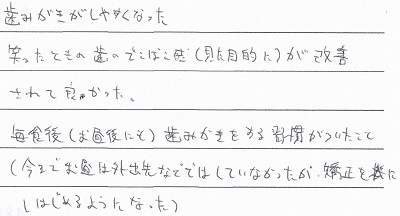 歯みがきがしやすくなった
笑ったときの歯のでこぼこ感(見た目的に)が改善
されて良かった。
毎食後(お昼後にも)歯みがきをする習慣がついたこと
(今までお昼は外出先などではしていなかったが、矯正を機に
しはじめるようになった)